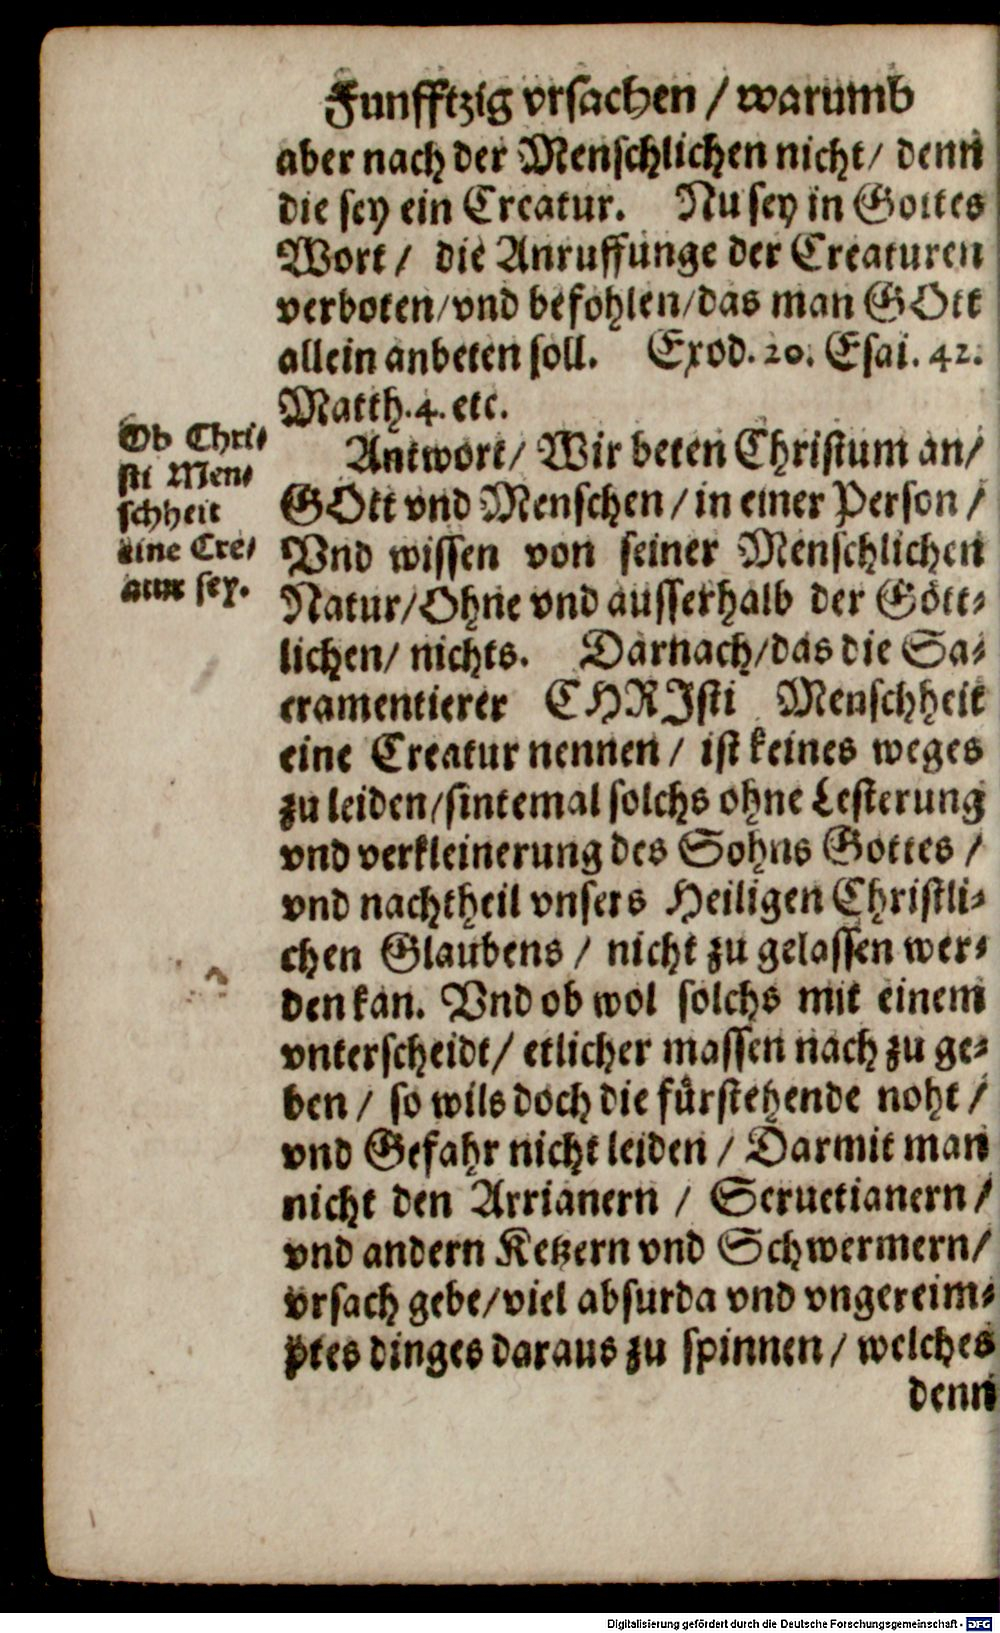 Funfftzig vrsachen / warumb
aber nach der Menschlichen nicht / denn
die sey ein Creatur. Nu sey in Gottes
Wort / die Anruffunge der Creaturen
verboten / vnd befohlen / das man GOtt
allein anbeten soll. Exod. 20. Esai. 42.
Matth. 4. etc.
Ob Chri-
sti Men-
schheit
eine Cre-
atur sey.
Antwort / Wir beten Christum an /
GOtt vnd Menschen / in einer Person /
Vnd wissen von seiner Menschlichen
Natur / Ohne vnd ausserhalb der Gött-
lichen / nichts. Darnach / das die Sa-
cramentierer CHRIsti Menschheit
eine Creatur nennen / ist keines weges
zu leiden / sintemal solchs ohne Lesterung
vnd verkleinerung des Sohns Gottes /
vnd nachtheil vnsers Heiligen Christli-
chen Glaubens / nicht zu gelassen wer-
den kan. Vnd ob wol solchs mit einem
vnterscheidt / etlicher massen nach zu ge-
ben / so wils doch die fürstehende noht /
vnd Gefahr nicht leiden / Darmit man
nicht den Arrianern / Seruetianern /
vnd andern Ketzern vnd Schwermern /
vrsach gebe / viel absurda vnd vngereim-
ptes dinges daraus zu spinnen / welches
denn
Digitalisierung gefördert durch die Deutsche Forschungsgemeinschaft - DFG